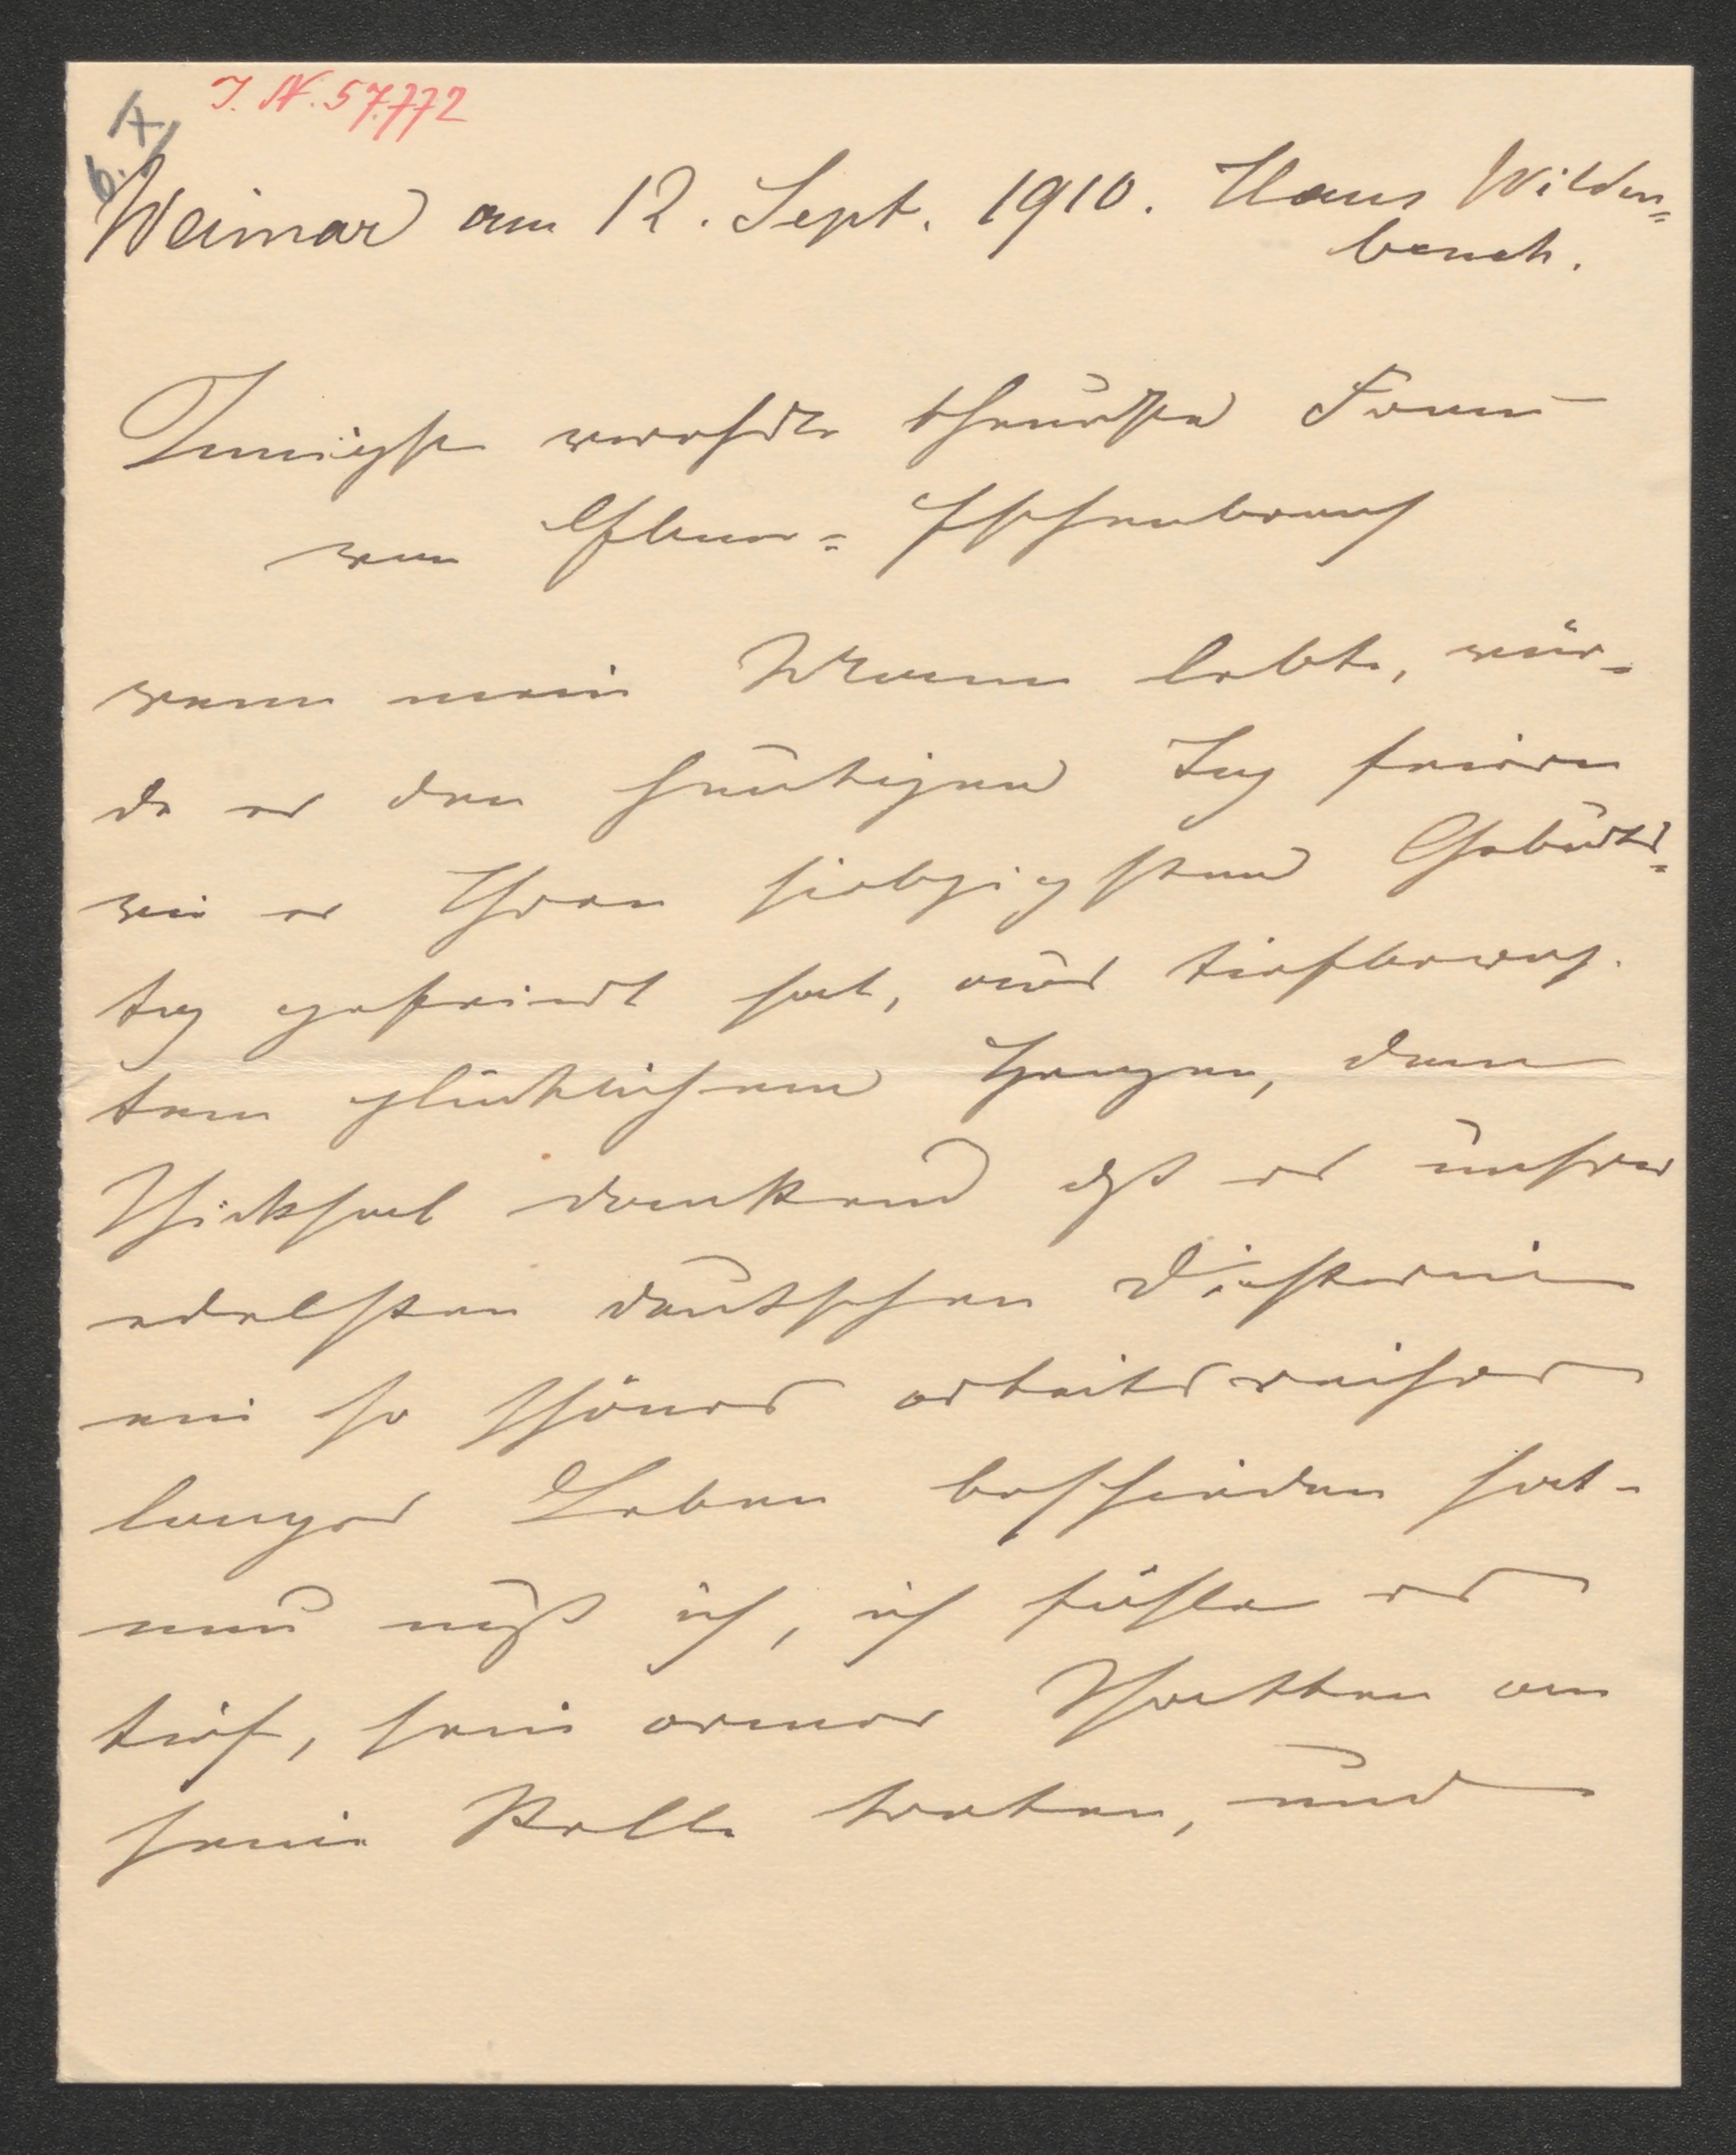 I. N. 57.772
6./X.
Weimar am 12. Sept. 1910. Haus Wilden=
bruch.
Innigst verehrte theuerste Frau
von Ebner=Eschenbach
wenn mein Mann lebte, wür-
de er den heutigen Tag feiern
wie er Ihren siebzigsten Geburts=
tag gefeiert hat, aus tiefbeweg-
tem glücklichem Herzen, dem
Schicksal dankend daß es unsrer
edelsten deutschen Dichterin
ein so schönes arbeitsreiches
langes Leben beschieden hat -
nun muß ich, ich fühle es
tief, sein armer Schatten an
seine Stelle treten, und